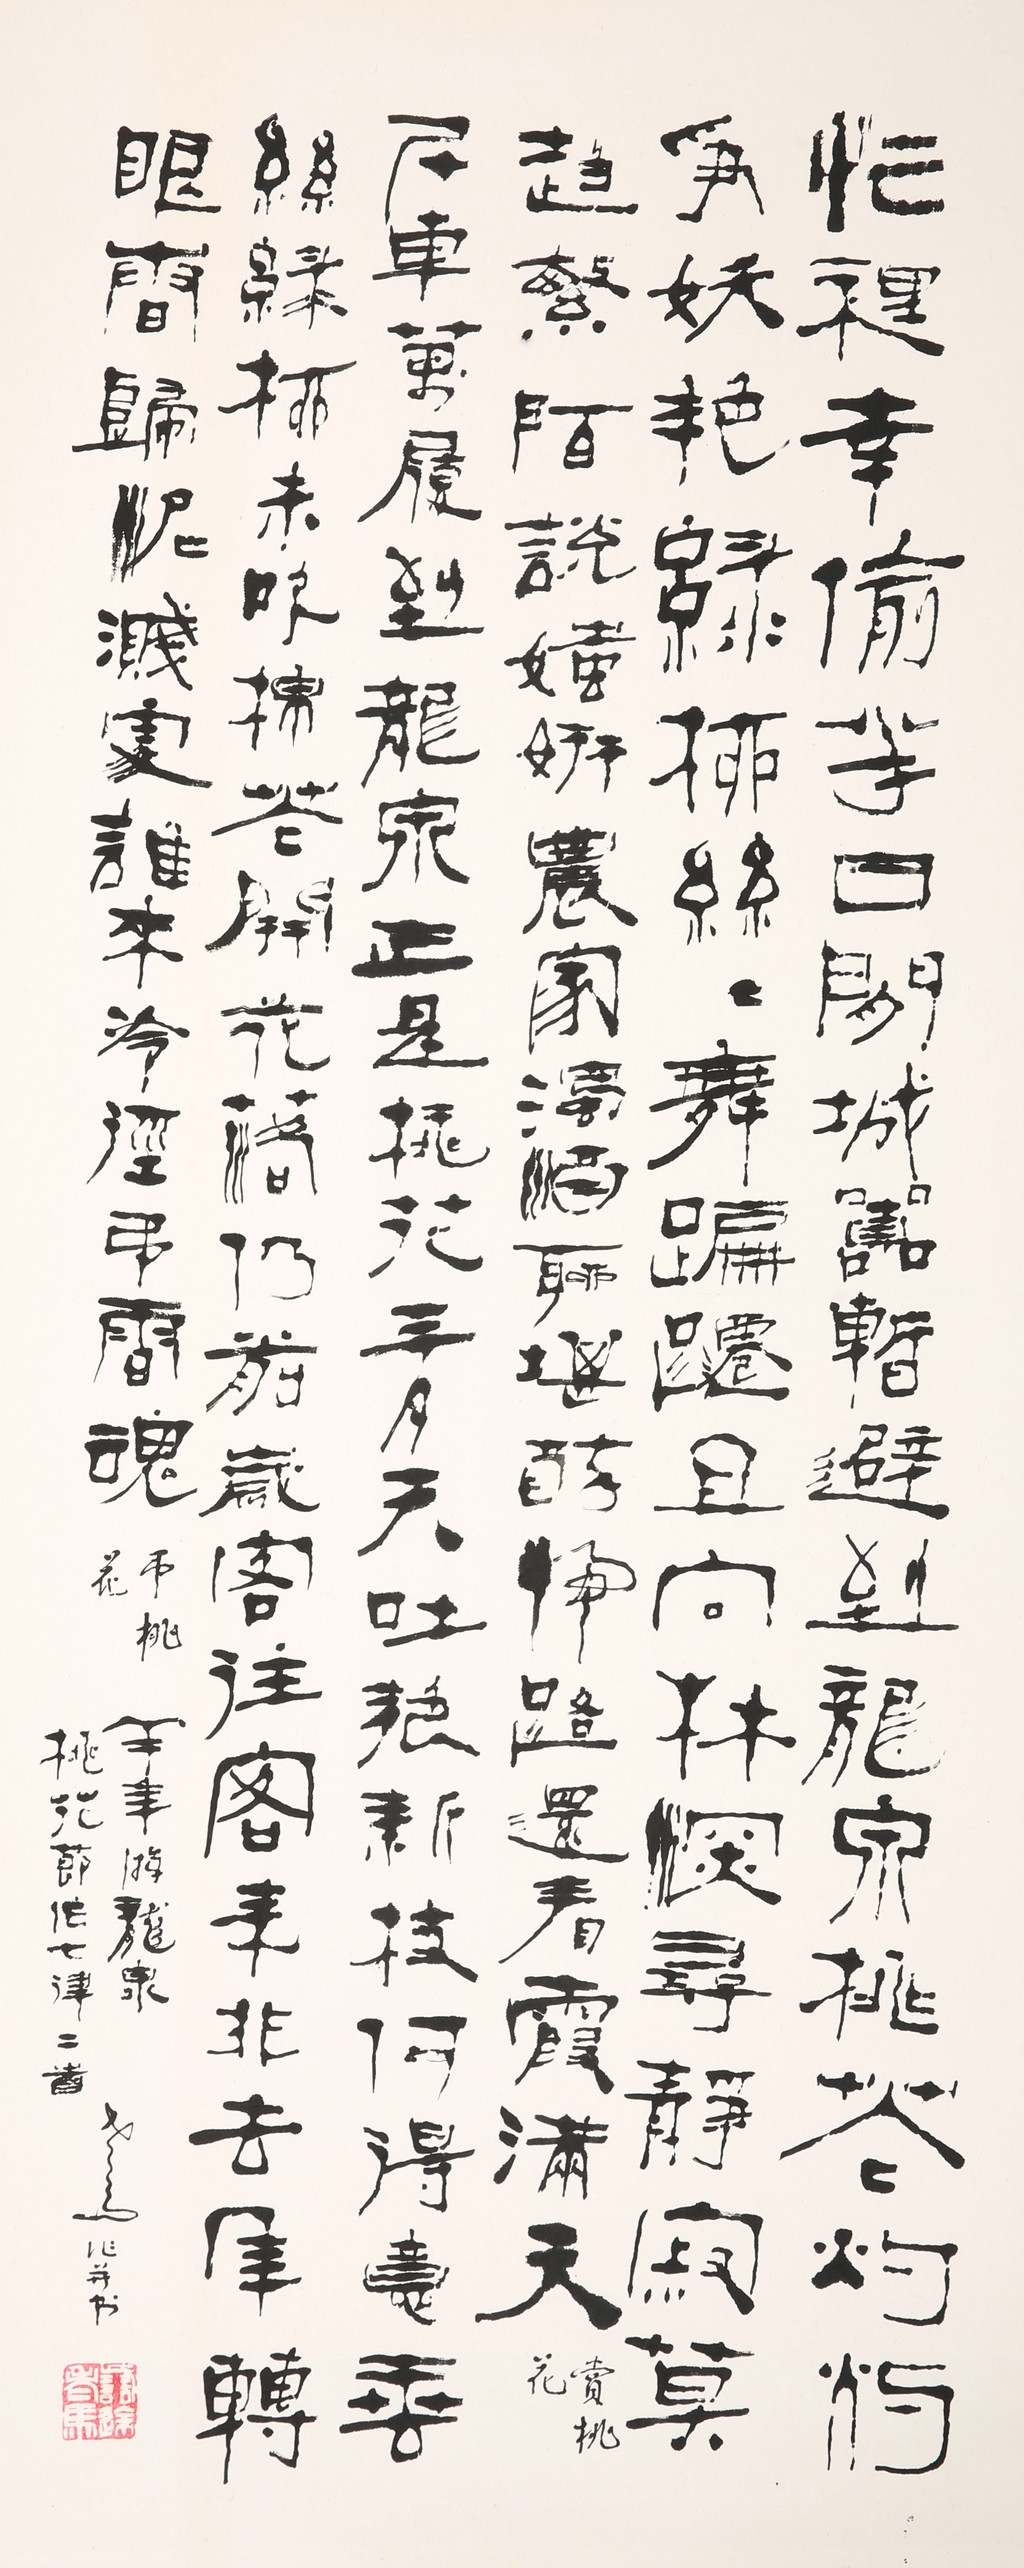 忙裡幸偷半日閑城囂暫避到龍泉桃花灼灼
爭妖艷綠柳絲絲舞蹁躚且向林深尋靜寂莫
趋繁陌說媸妍農家濁酒聊堪醉歸路還看霞滿天
賞桃
花
斥車萬履到龍泉正是桃花三月天吐艷新枝何得意垂
絲綠柳未吹棉花開花落仍前歲客往客來非去年轉
眼香歸泥濺處誰來冷徑弔香魂
弔桃
花
午年游龍泉
桃花節作七律二首
作并書